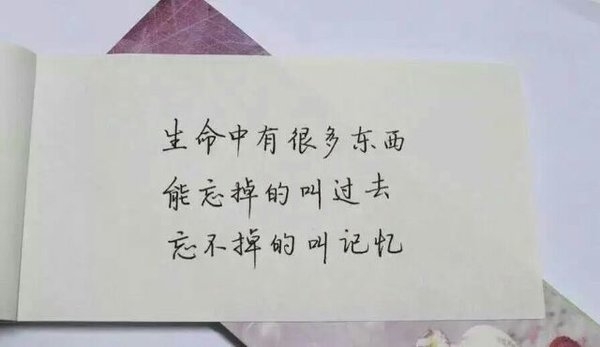 生命中有很多东西
能忘掉的叫过去
忘不掉的叫记忆